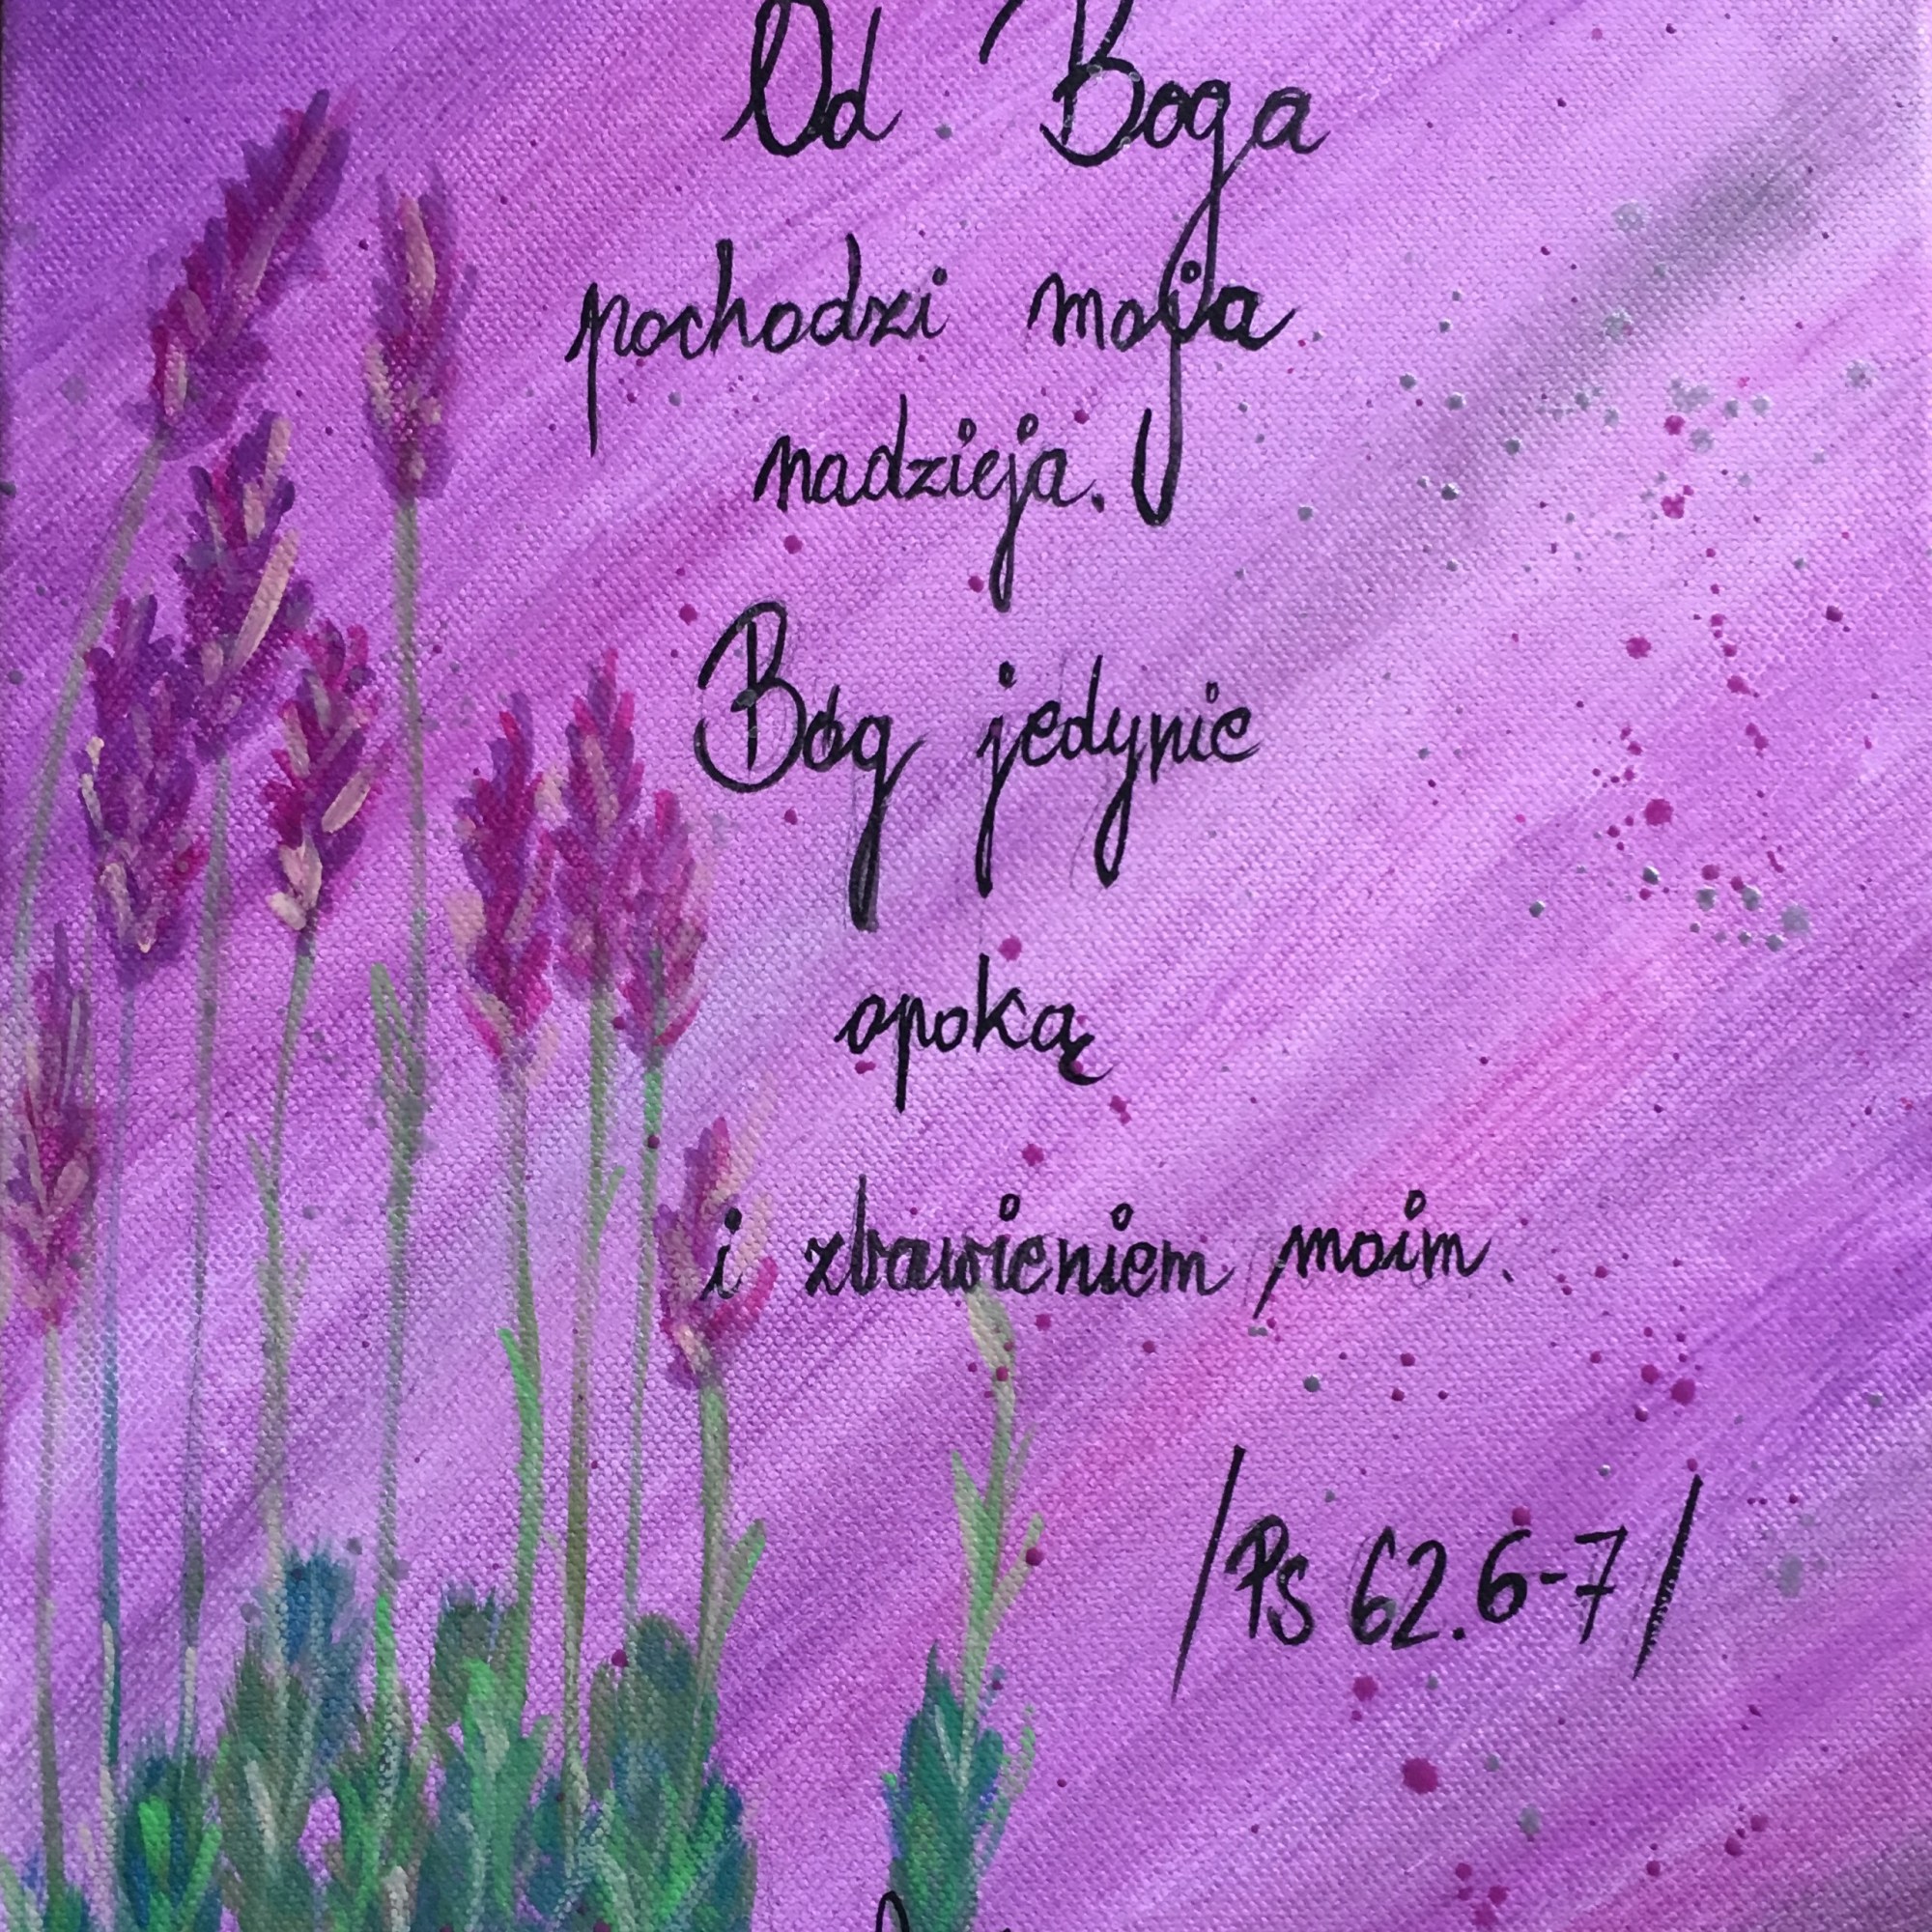 Od Boga
pochodzi moja
nadzieja.
Bóg jedynie
opoką
i zbawieniem moim.
/Ps 62.6-7/